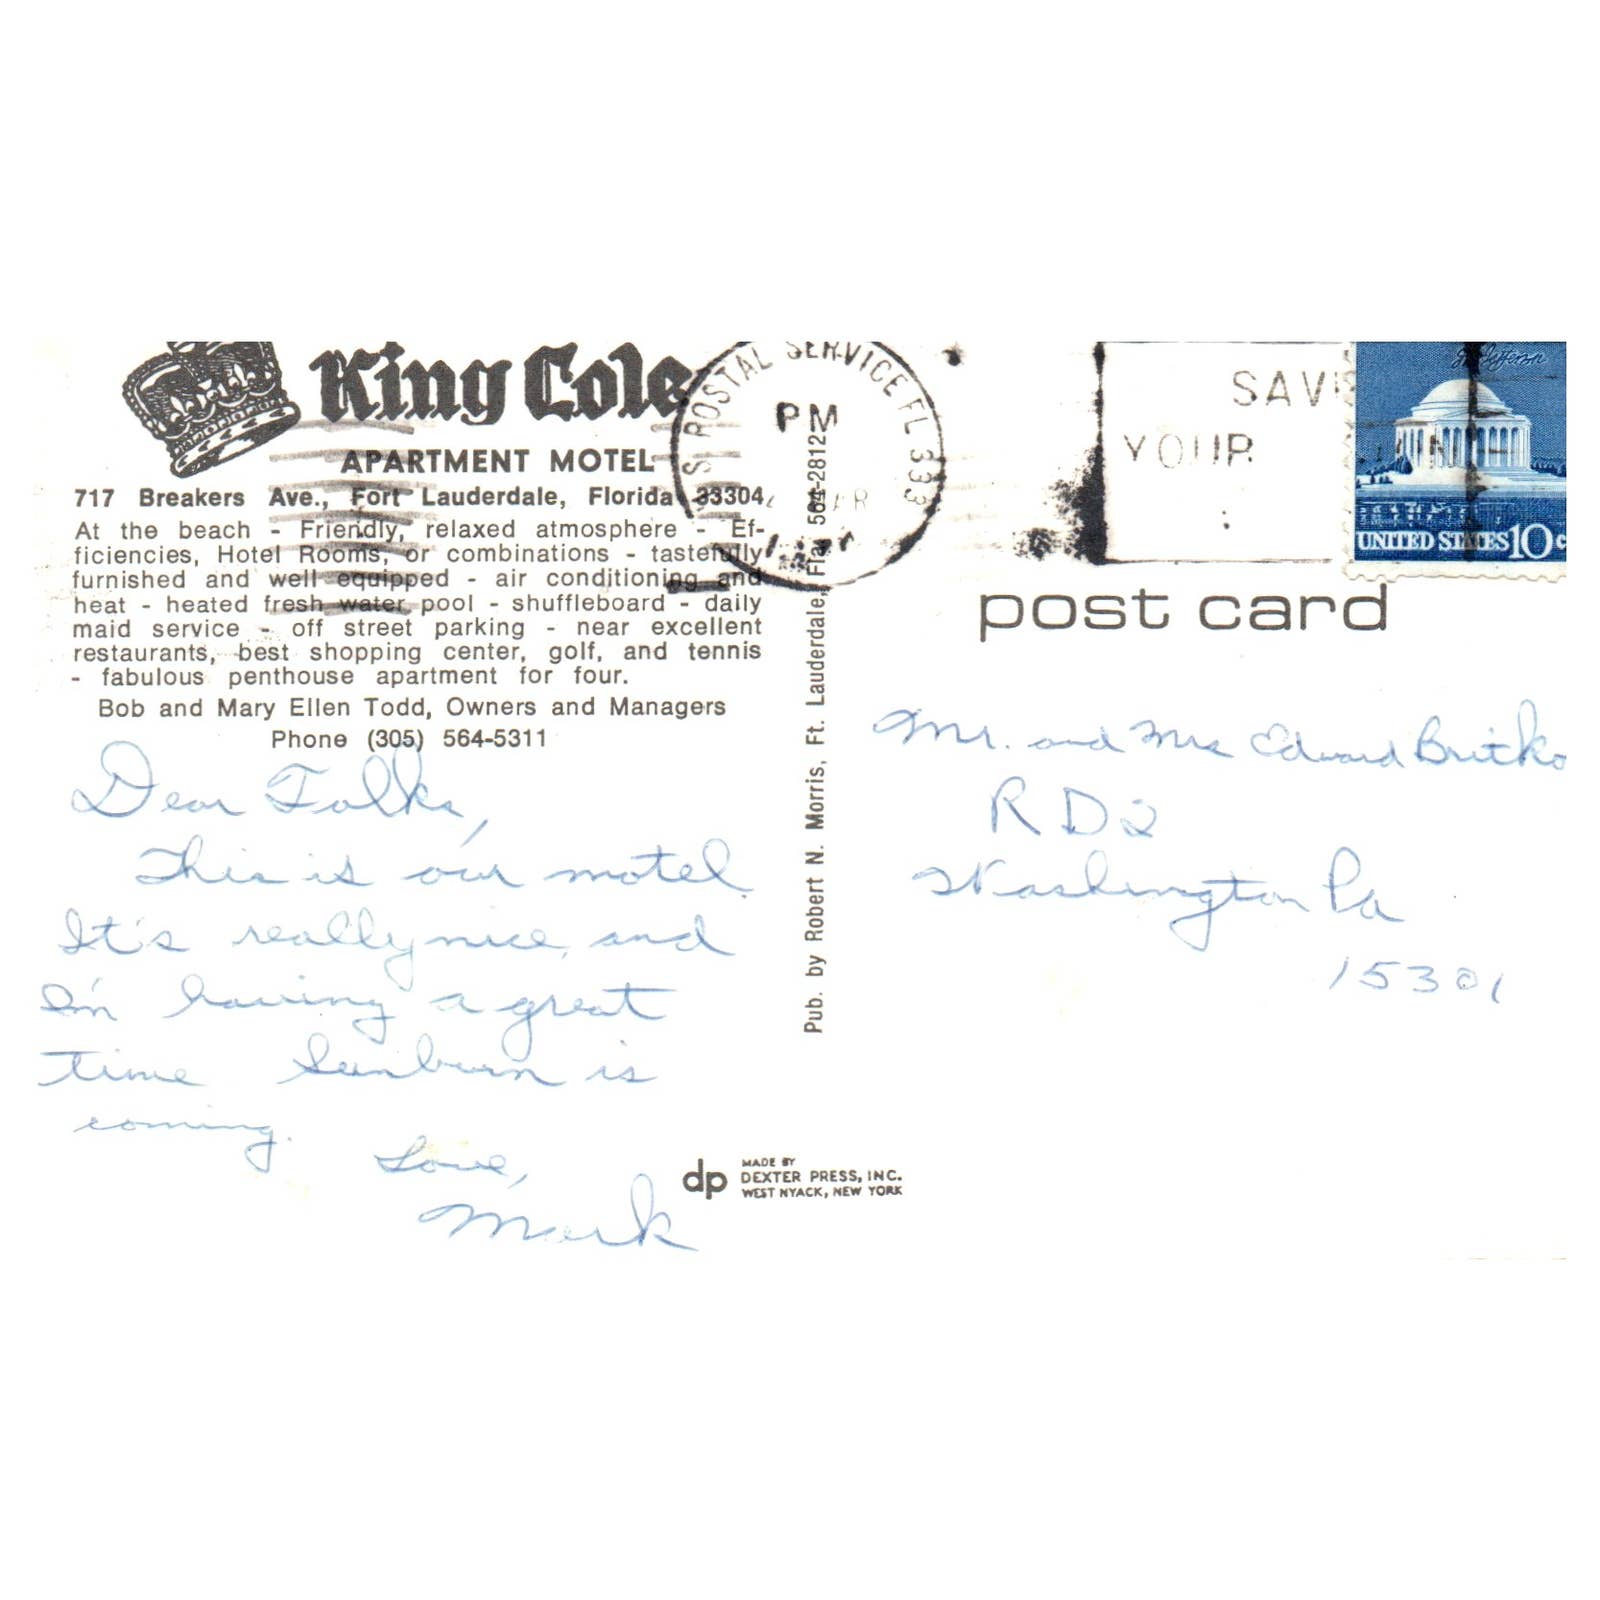 King Cole
APARTMENT MOTEL
717 Breakers Ave., Fort Lauderdale, Florida 33304
At the beach - Friendly, relaxed atmosphere - Ef-
ficiencies, Hotel Rooms, or combinations - tastefully
furnished and well equipped - air conditioning and
heat - heated fresh water pool - shuffleboard - daily
maid service - off street parking - near excellent
restaurants, best shopping center, golf, and tennis
- fabulous penthouse apartment for four.
Bob and Mary Ellen Todd, Owners and Managers
Phone (305) 564-5311
Dear Folks,
This is our motel.
It's really nice, and
I'm having a great
time Sunburn is
coming.
Love,
Mark
Pub. by Robert N. Morris, Ft. Lauderdale, Fla. 564-2812
dp
MADE BY
DEXTER PRESS, INC.
WEST NYACK, NEW YORK
POSTAL SERVICE FL 333
PM
YOUR
UNITED STATES 10c
post card
Mr. and Mrs Edward Britko
RD2
Washington Pa
15301